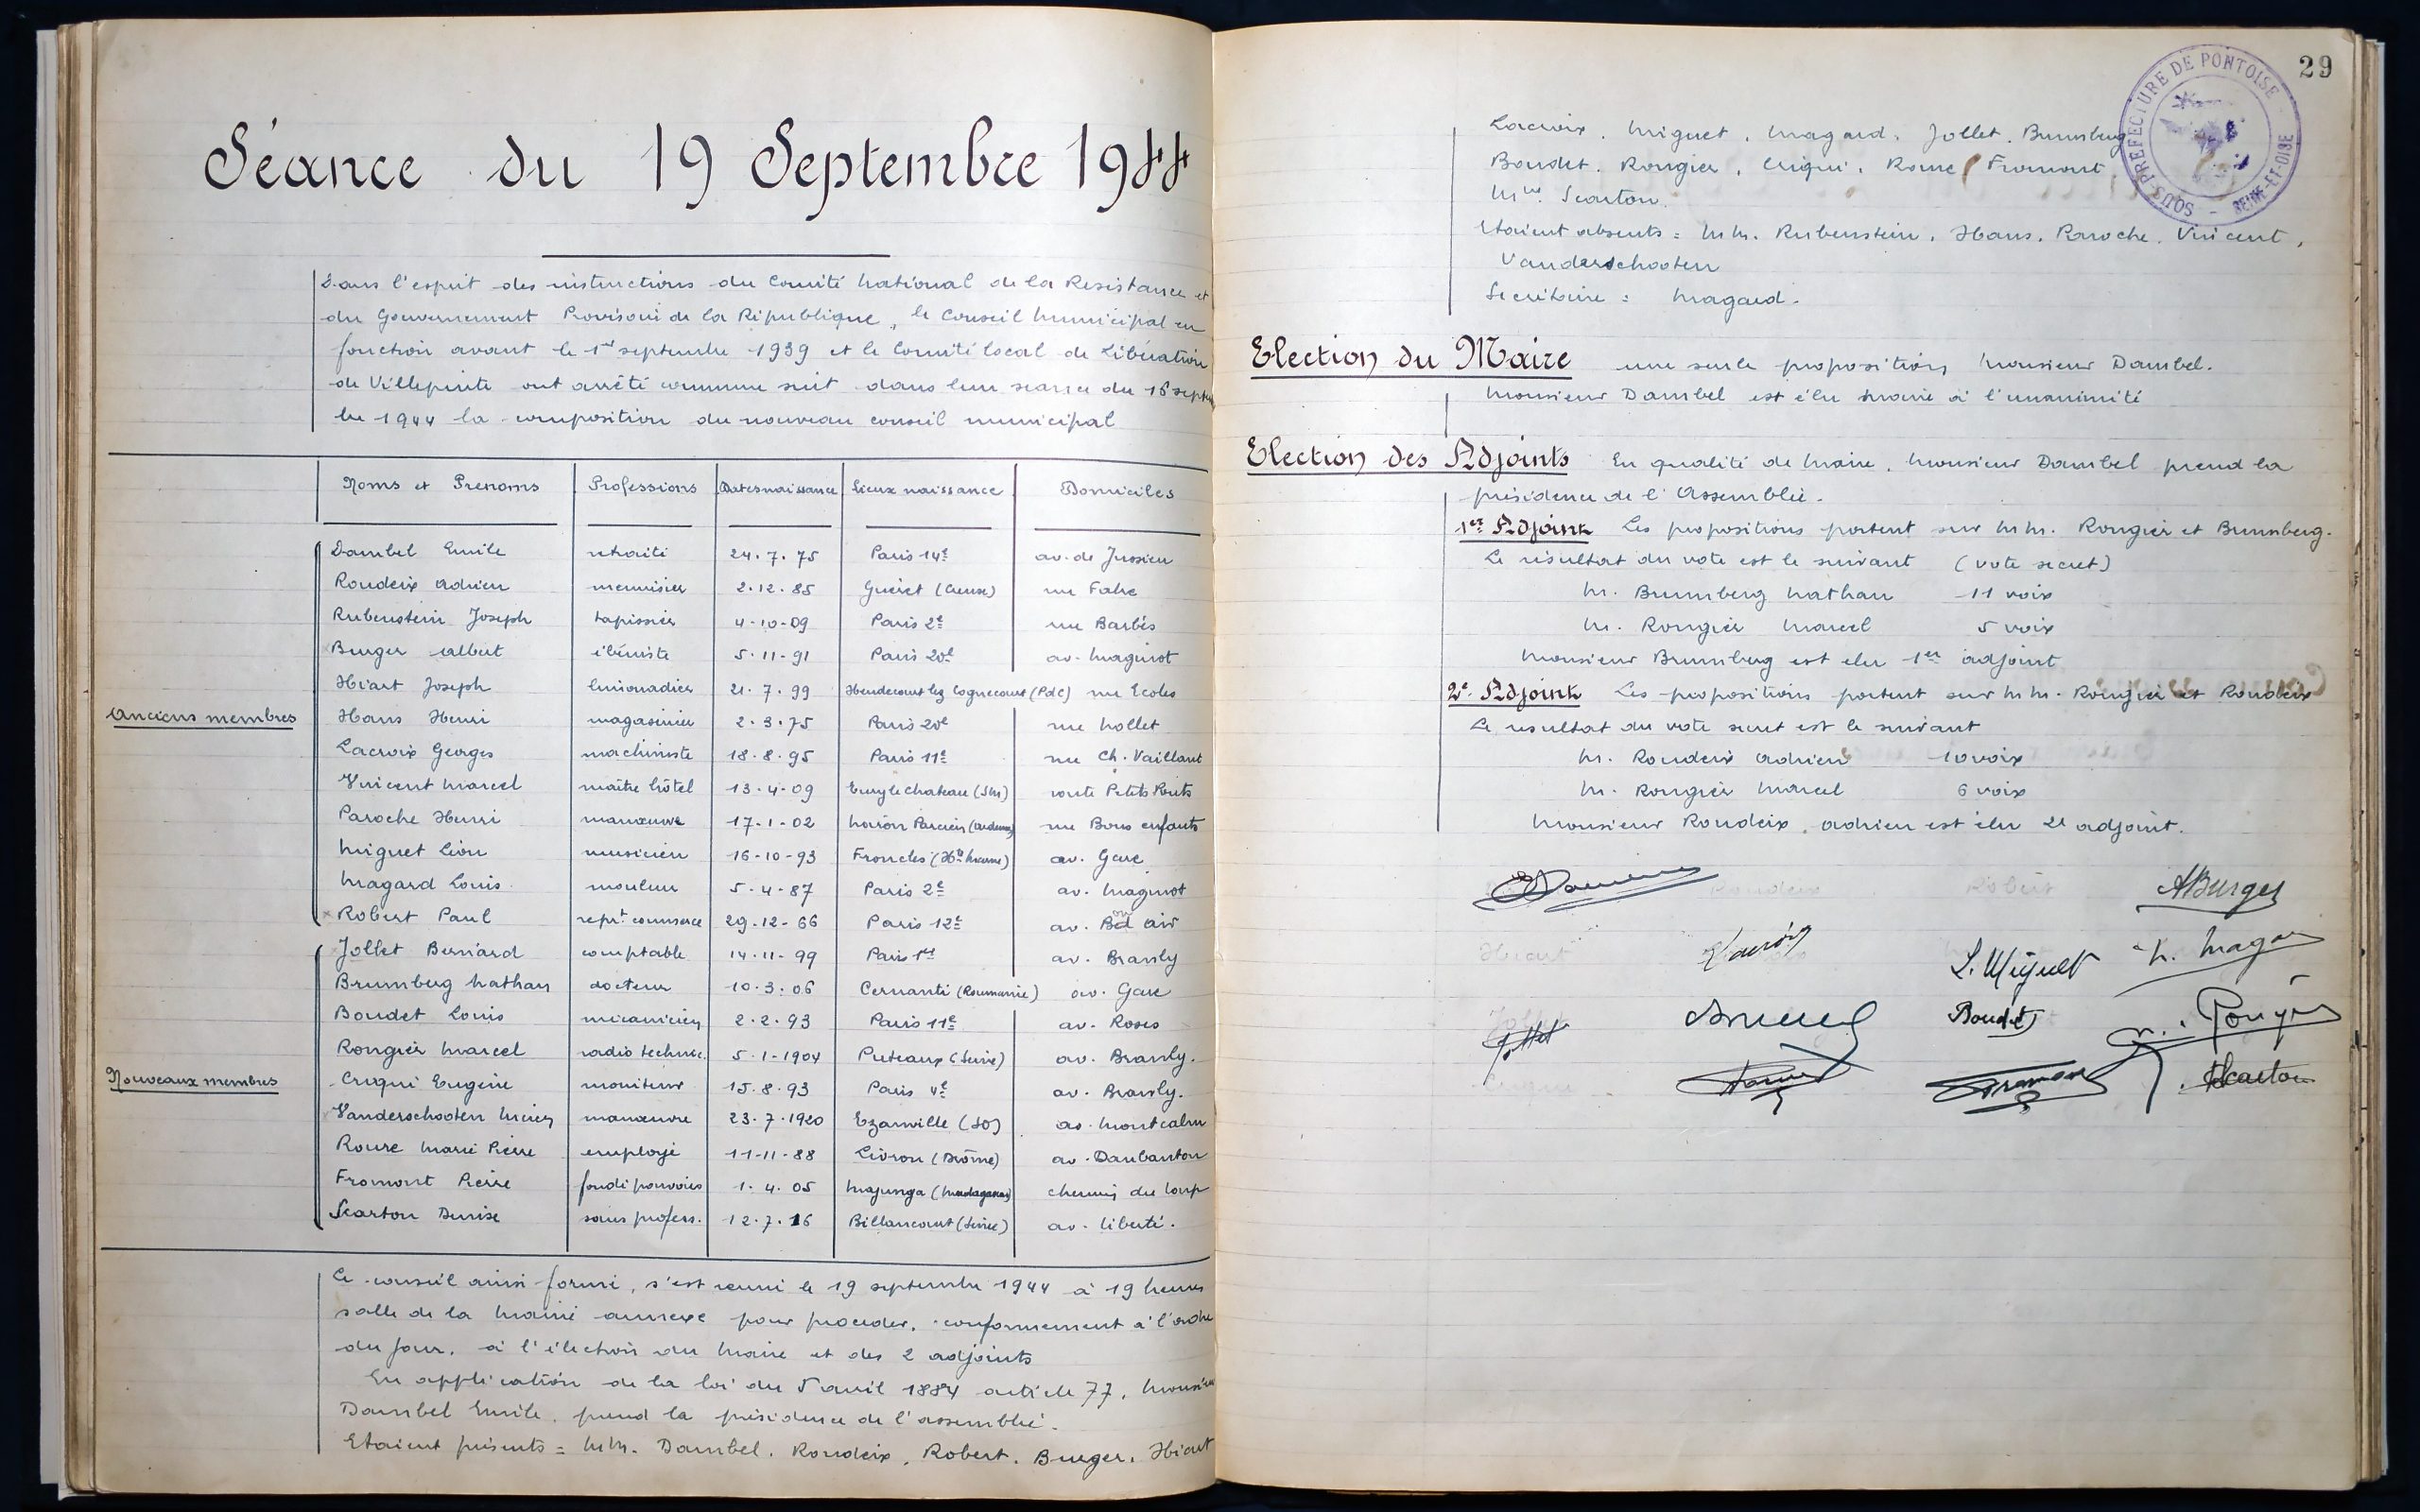 Séance du 19 Septembre 1944
Dans l'esprit des instructions du Comité National de la Resistance et
du Gouvernement Provisoire de la République, le Conseil Municipal en
fonction avant le 1er septembre 1939 et le Comité local de Libération
de Villepinte ont arrêté comme suit dans leur séance du 16 septem
bre 1944 la composition du nouveau conseil municipal
Noms et Prenoms Professions Dates naissance Lieux naissance Domiciles
Anciens membres
Dambel Emile retraité 24.7.75 Paris 14e av. de Jussieu
Roudeix Adrien menuisier 2.12.85 Guéret (Creuse) rue Fabre
Rubenstein Joseph tapissier 4-10-09 Paris 2e rue Barbès
Burger Albert ébéniste 5.11-91 Paris 20e av. Maginot
Hiart Joseph limonadier 21.7.99 Hendecourt lez Cagnicourt (PdC) rue Ecoles
Hans Henri magasinier 2.3.75 Paris 20e rue Nollet
Lacroix Georges machiniste 18.8.95 Paris 11e rue Ch. Vaillant
Vincent Marcel maître hôtel 13.4.09 Eury le chateau (SM) route Petits Ponts
Paroche Henri manoeuvre 17-1-02 (Ardennes) rue Bons enfants
Miguet Léon musicien 16-10-93 Froncles (Hte Marne) av. Gare
Magard Louis mouleur 5.4.87 Paris 2e av. Maginot
Robert Paul reprt commerce 29.12-66 Paris 12e av. Bol air
Nouveaux membres
Jollet Bernard comptable 14-11-99 Paris 1er av. Branly
Brumberg Nathan docteur 10.3.06 Cernanti (Roumanie) av. Gare
Boudet Louis mécanicien 2.2.93 Paris 11e av. Roses
Rougier Marcel radio technic. 5.1-1904 Puteaux (Seine) av. Branly.
Criqui Eugène moniteur 15.8.93 Paris 4e av. Branly.
Vanderschooten manoeuvre 23.7.1920 Ezanville (SO) av. Montcalm
Roure Marie Pierre employé 11-11-88 Livron (Drôme) av. Daubanton
Fromont Pierre fondé pouvoirs 1.4.05 Majunga (Madagascar) chemin du Loup
Scarton Denise sans profess. 12.7.16 Billancourt (Seine) av. liberté.
Le conseil ainsi formé, s'est reuni le 19 septembre 1944 à 19 heures
salle de la Mairie annexe pour proceder, conformement à l'ordre
du jour, à l'élection du Maire et des 2 adjoints
En application de la loi du 5 avril 1884 article 77, Monsieur
Dambel Emile, prend la présidence de l'assemblée.
Etaient présents = MM. Dambel, Roudeix, Robert, Burger, Hiart
29
SOUS-PREFECTURE DE PONTOISE - SEINE-ET-OISE
Lacroix, Miguet, Magard, Jollet, Brumberg
Boudet, Rougier, Criqui, Roure, Fromont
Mme Scarton.
Etaient absents = MM. Rubenstein, Hans, Paroche, Vincent,
Vanderschooten
Secrétaire = Magard.
Election du Maire une seule proposition Monsieur Dambel.
Monsieur Dambel est élu Maire à l'unanimité
Election des Adjoints En qualité de Maire, Monsieur Dambel prend la
présidence de l'Assemblée.
1er Adjoint Les propositions portent sur MM. Rougier et Brumberg.
Le résultat du vote est le suivant (vote secret)
M. Brumberg Nathan 11 voix
M. Rougier Marcel 5 voix
Monsieur Brumberg est élu 1er adjoint
2e Adjoint Les propositions portent sur MM. Rougier et Roudeix
Le resultat du vote secret est le suivant
M. Roudeix Adrien 10 voix
M. Rougier Marcel 6 voix
Monsieur Roudeix Adrien est élu 2e adjoint.
ABurger
Lacroix
L. Miguet
Magard
Jollet
Boudet
Rougier
Fromont
Scarton